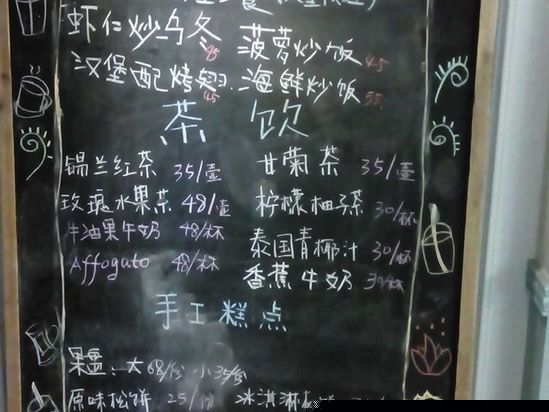 虾仁炒乌冬 45 菠萝炒饭 45
汉堡配烤翅 45 海鲜炒饭 55
茶 饮
锡兰红茶 35/壶 甘菊茶 35/壶
玫瑰水果茶 48/壶 柠檬柚子茶 30/杯
牛油果牛奶 48/杯 泰国青椰汁 30/杯
Affogato 48/杯 香蕉牛奶 30/杯
手工糕点
果盘、大68/份 小35/份
原味松饼 25/份 冰淇淋松饼